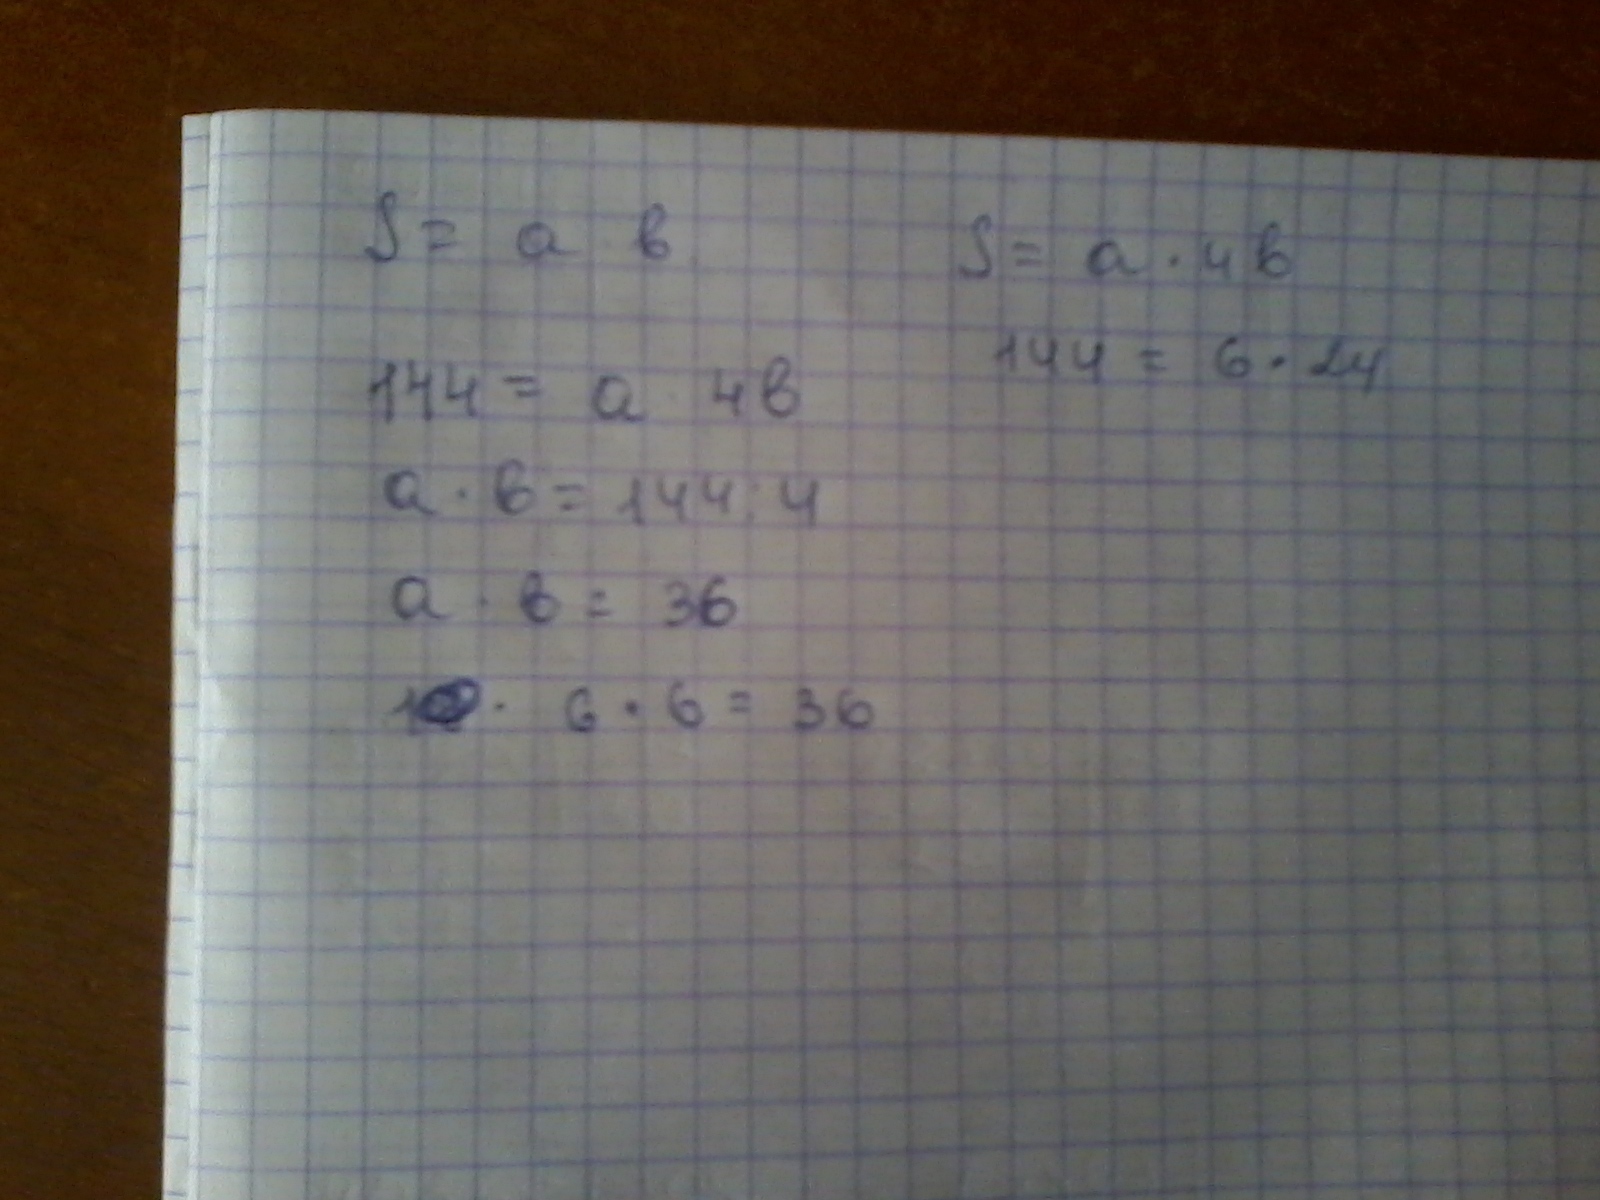 S = a b
144 = a · 4b
a · b = 144 : 4
a · b = 36
6 · 6 = 36
S = a · 4b
144 = 6 · 24